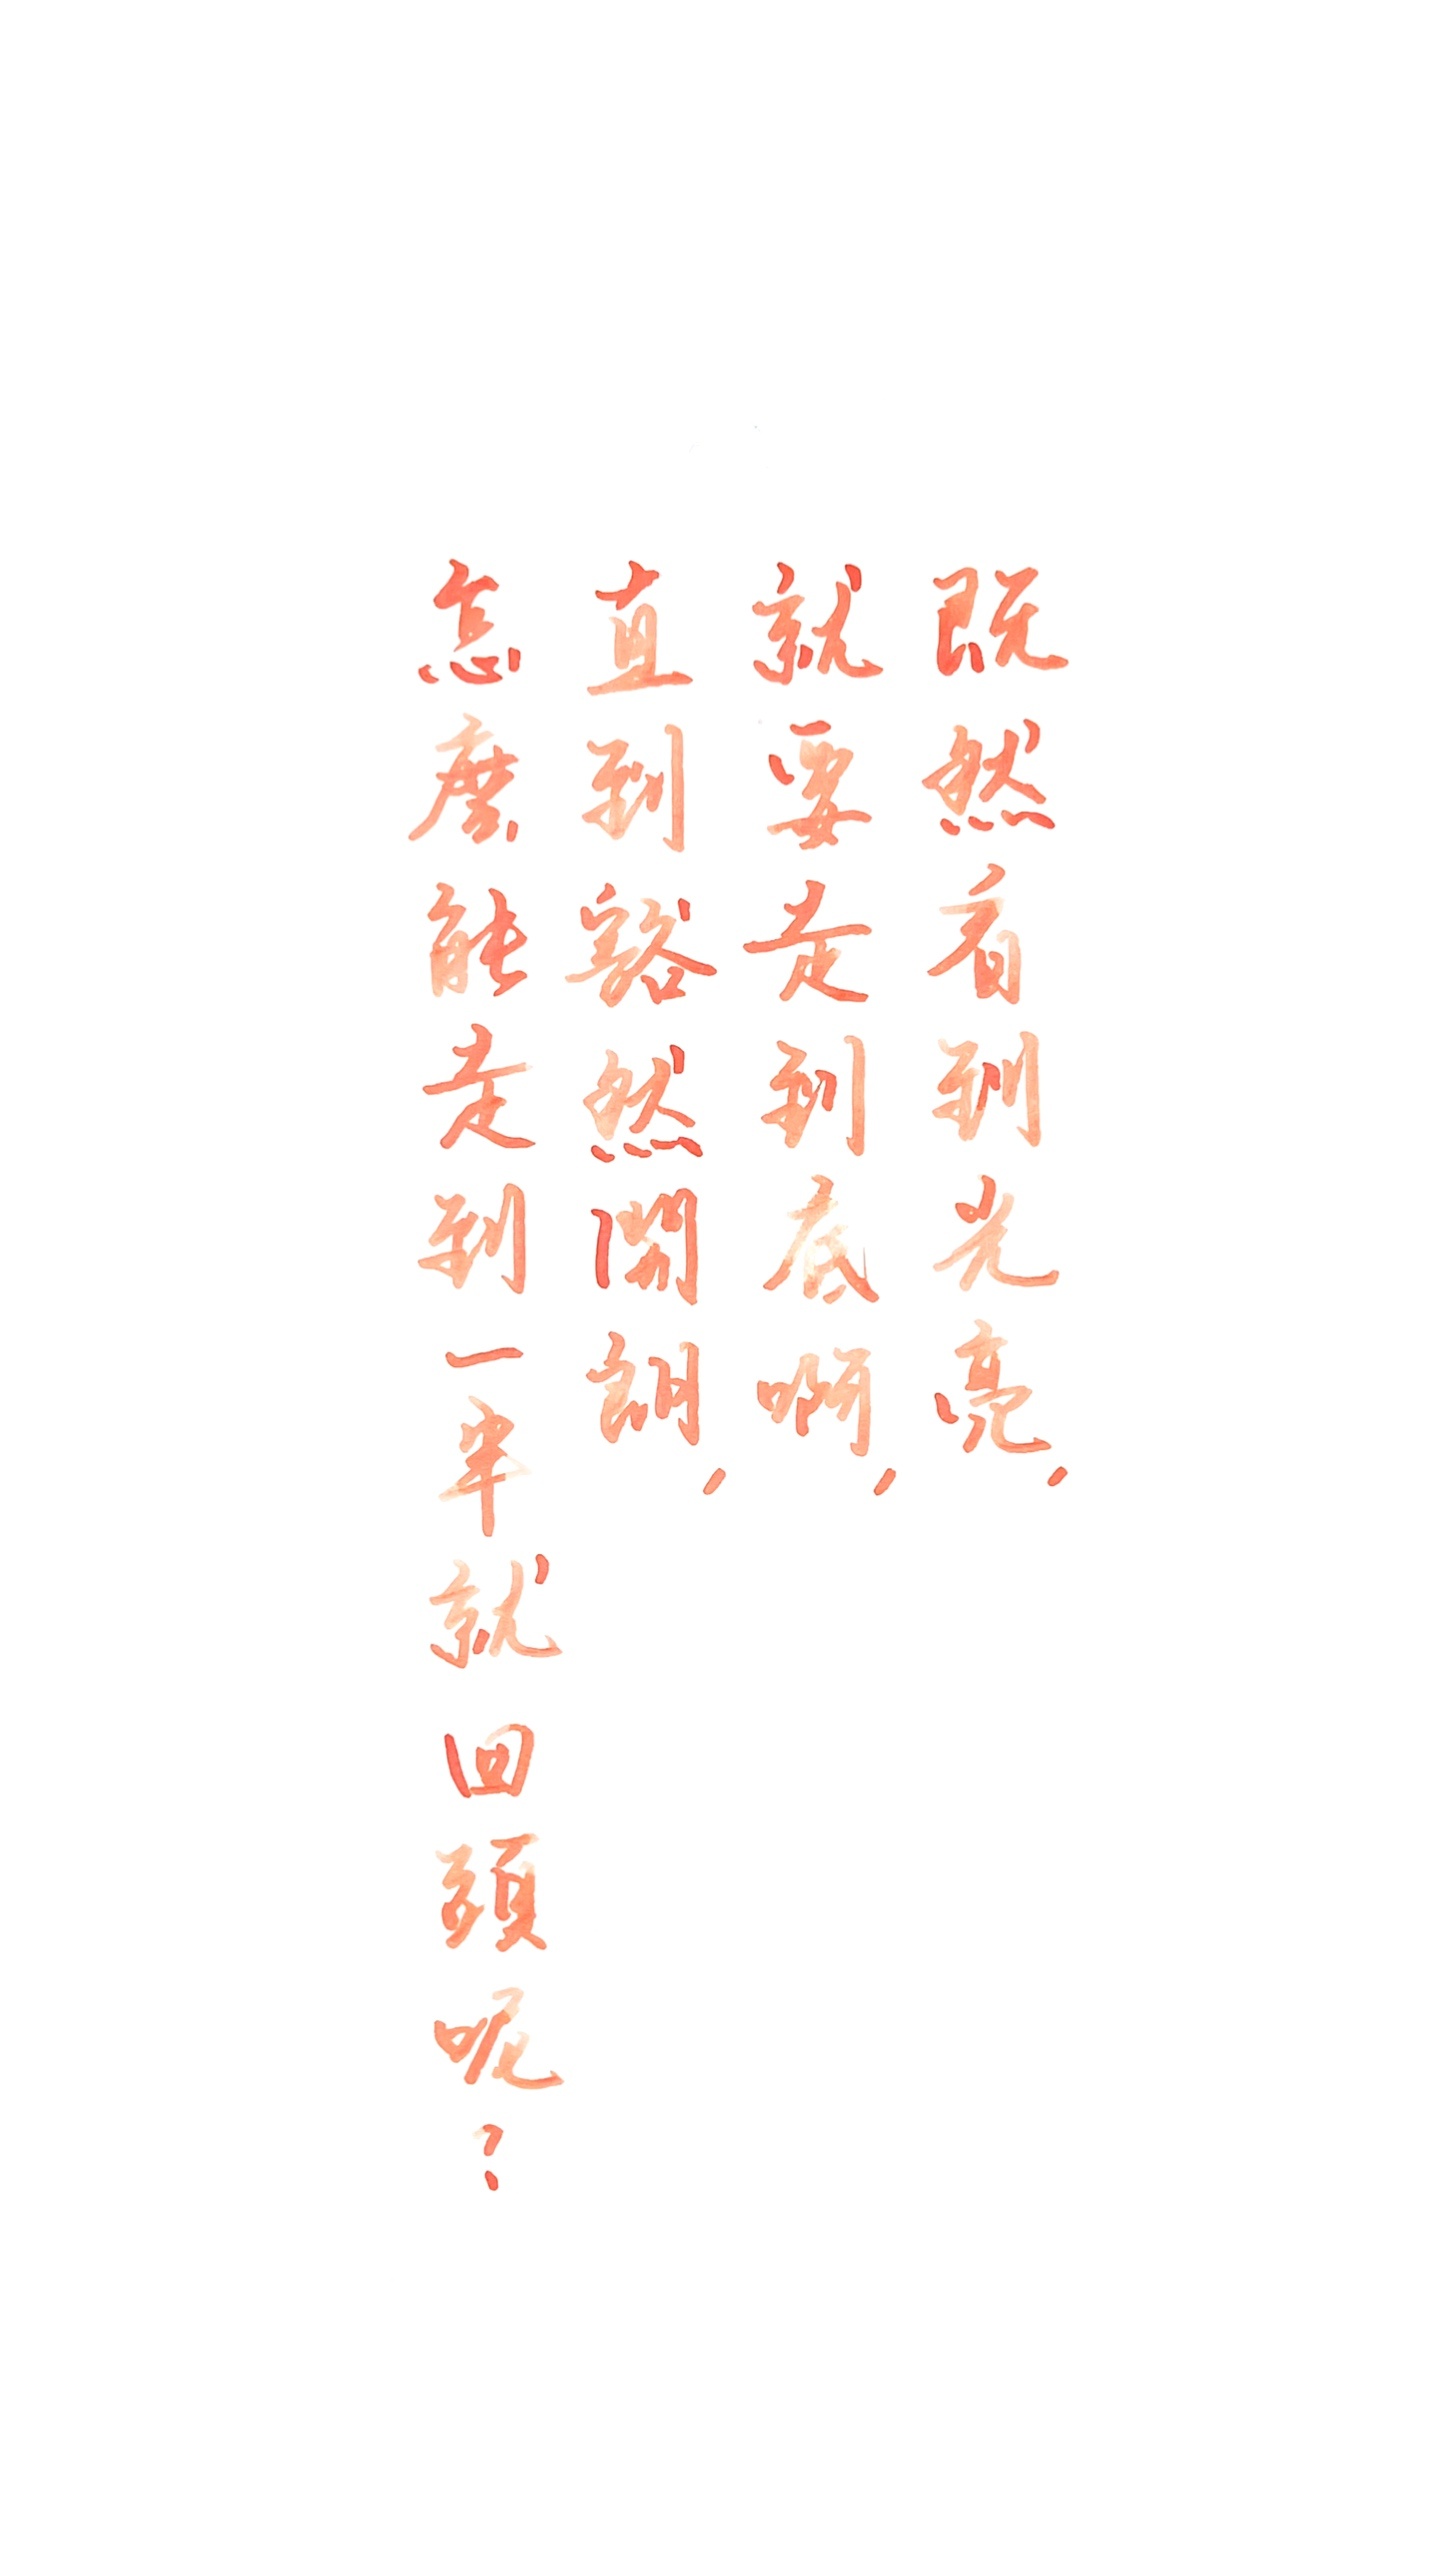 既然看到光亮，
就要走到底啊，
直到豁然開朗，
怎麼能走到一半就回頭呢？